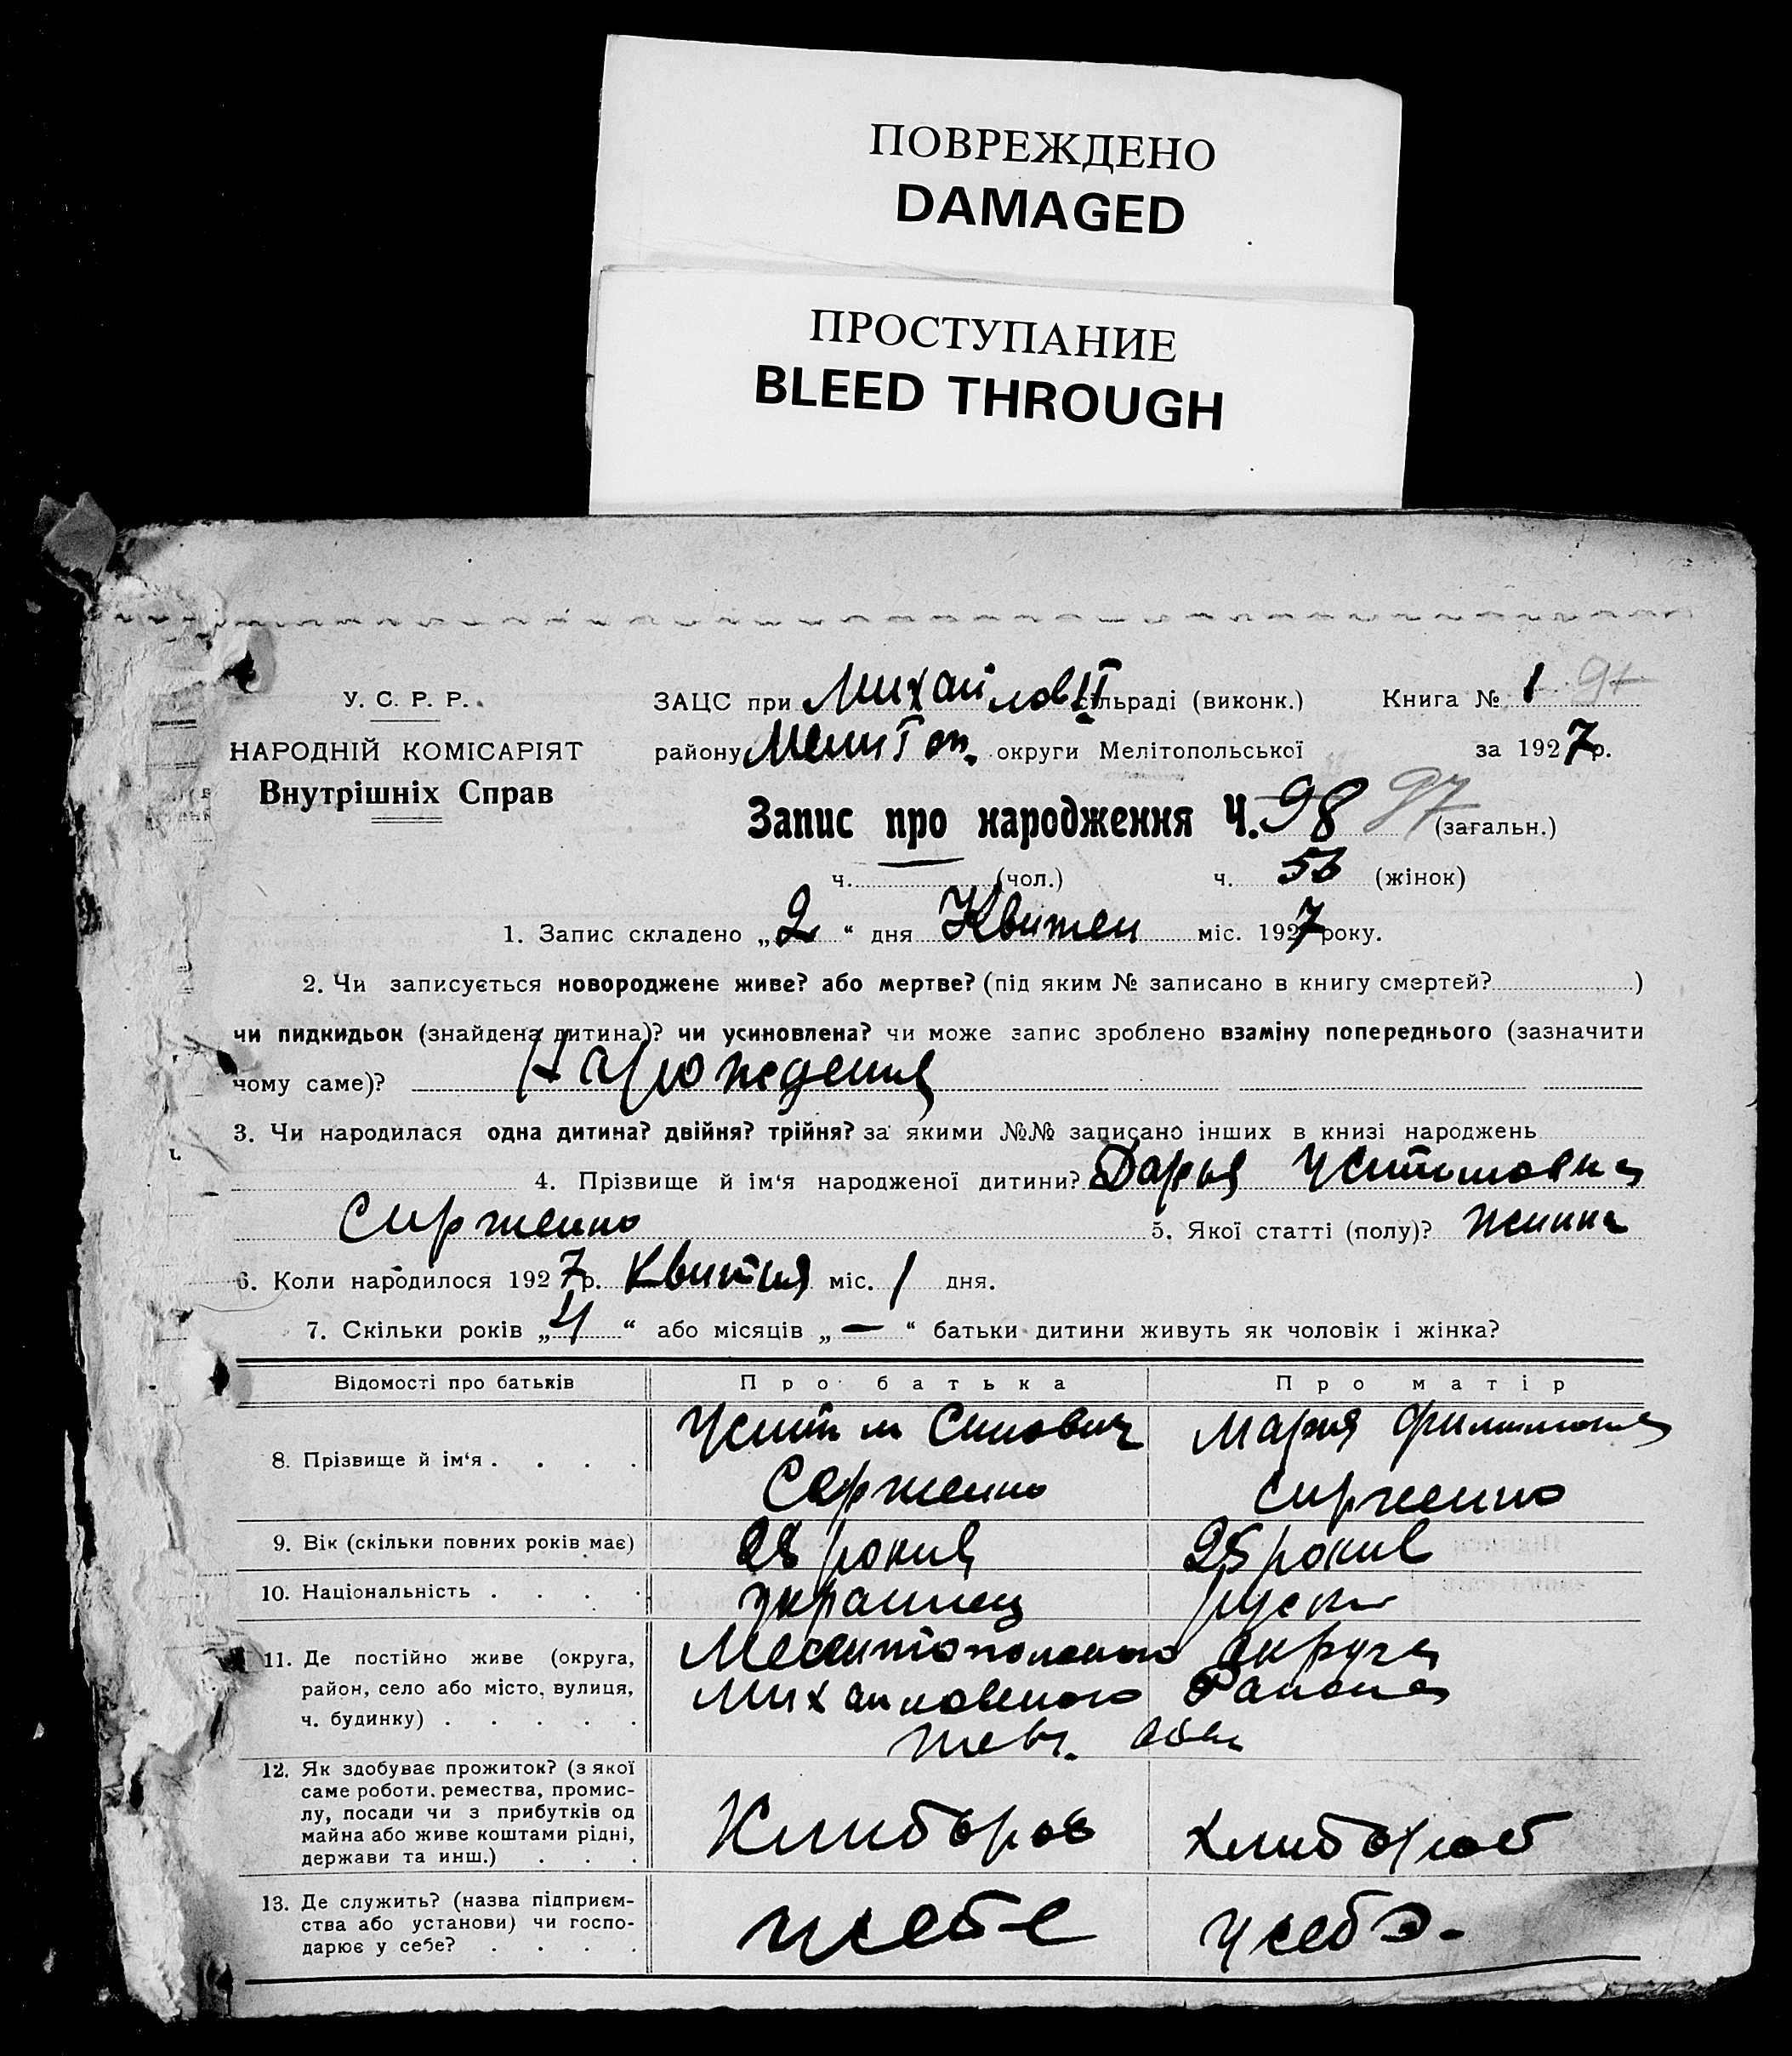 ПОВРЕЖДЕНО
DAMAGED
ПРОСТУПАНИЕ
BLEED THROUGH
У. С. Р. Р. ЗАЦС при Михайлов II сільраді (виконк.) Книга № 1 91
НАРОДНІЙ КОМІСАРІЯТ району Мелитоп. округи Мелітопольської за 1927 р.
Внутрішніх Справ
Запис про народження Ч. 98 97 (загальн.)
ч. — (чол.) ч. 56 (жінок)
1. Запис складено „2“ дня Квитен міс. 1927 року.
2. Чи записується новороджене живе? або мертве? (під яким № записано в книгу смертей? )
чи пидкидьок (знайдена дитина)? чи усиновлена? чи може запис зроблено взаміну попереднього (зазначити
чому саме)? Нарождения
3. Чи народилася одна дитина? двійня? трійня? за якими №№ записано інших в книзі народжень
4. Прізвище й ім‘я народженої дитини? Дарья
Сирженко 5. Якої статті (полу)? жинка
6. Коли народилося 1927 р. Квитня міс. 1 дня.
7. Скільки років „4“ або місяців „—“ батьки дитини живуть як чоловік і жінка?
Відомості про батьків Про батька Про матір
8. Прізвище й ім‘я . . . .
Мария
Серженко Сирженко
9. Вік (скільки повних років має) 28 рокив 25 рокив
10. Національність . . . . украинец руска
11. Де постійно живе (округа, Мелитопольского округа
район, село або місто, вулиця, Михайловского Района
ч. будинку) . . . . .
12. Як здобуває прожиток? (з якої
саме роботи, ремества, промис-
лу, посади чи з прибутків од
майна або живе коштами рідні, Хлибороб хлибороб
держави та инш.) . . .
13. Де служить? (назва підприєм-
ства або установи) чи госпо- усебе усебе
дарює у себе? . . . .